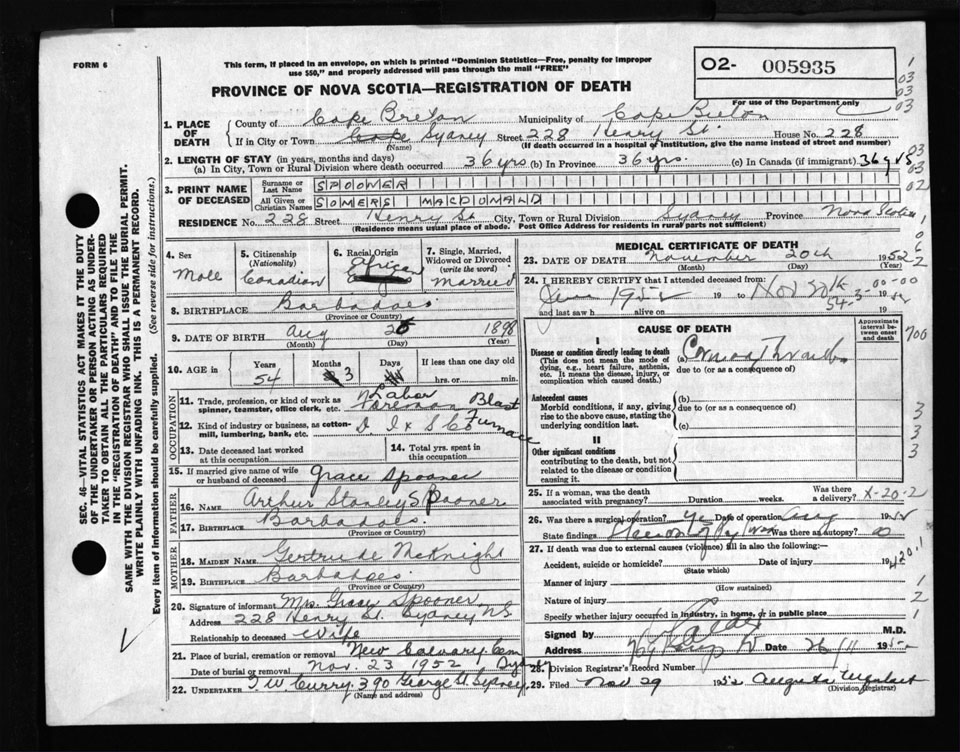 FORM 6
This form, if placed in an envelope, on which is printed "Dominion Statistics—Free, penalty for improper
use $50," and properly addressed will pass through the mail "FREE"
O2- 005935
For use of the Department only
PROVINCE OF NOVA SCOTIA—REGISTRATION OF DEATH
1. PLACE OF DEATH County of Cape Breton Municipality of Cape Breton
If in City or Town Sydney Street 228 Henry St. House No. 228
(Name) (If death occurred in a hospital or institution, give the name instead of street and number)
2. LENGTH OF STAY (in years, months and days)
(a) In City, Town or Rural Division where death occurred 36 yrs (b) In Province 36 yrs. (c) In Canada (if immigrant) 36 yrs
3. PRINT NAME OF DECEASED
Surname or Last Name SPOONER
All Given or Christian Names SOMERS MACDONALD
RESIDENCE No. 228 Street Henry St City, Town or Rural Division Sydney Province Nova Scotia
(Residence means usual place of abode. Post Office Address for residents in rural parts not sufficient)
4. Sex Male
5. Citizenship (Nationality) Canadian
6. Racial Origin African
7. Single, Married, Widowed or Divorced (write the word) Married
8. BIRTHPLACE Barbadoes
(Province or Country)
9. DATE OF BIRTH Aug 1898
(Month) (Day) (Year)
10. AGE in Years 54 Months 3 Days If less than one day old
hrs. or min.
OCCUPATION
11. Trade, profession, or kind of work as spinner, teamster, office clerk, etc. Labor Foreman Blast
12. Kind of industry or business, as cotton-mill, lumbering, bank, etc. D. I & S Co Furnace
13. Date deceased last worked at this occupation
14. Total yrs. spent in this occupation
15. If married give name of wife or husband of deceased Grace Spooner
FATHER
16. NAME Arthur Stanley Spooner
17. BIRTHPLACE Barbadoes.
(Province or Country)
MOTHER
18. MAIDEN NAME Gertrude McKnight
19. BIRTHPLACE Barbadoes
(Province or Country)
20. Signature of informant Mrs. Grace Spooner
Address 228 Henry St. Sydney NS
Relationship to deceased Wife
21. Place of burial, cremation or removal New Calvary Cem Sydney
Date of burial or removal Nov. 23 1952
22. UNDERTAKER T. W. Curry. 390 George St. Sydney
(Name and address)
MEDICAL CERTIFICATE OF DEATH
23. DATE OF DEATH November 20th 1952
(Month) (Day) (Year)
24. I HEREBY CERTIFY that I attended deceased from:
1952 19 to Nov 20th 1952
and last saw h alive on 19
CAUSE OF DEATH
Approximate interval between onset and death
I
Disease or condition directly leading to death
(This does not mean the mode of dying, e.g., heart failure, asthenia, etc. It means the disease, injury, or complication which caused death.)
(a)
due to (or as a consequence of)
Antecedent causes
Morbid conditions, if any, giving rise to the above cause, stating the underlying condition last.
(b)
due to (or as a consequence of)
(c)
II
Other significant conditions
contributing to the death, but not related to the disease or condition causing it.
25. If a woman, was the death associated with pregnancy? Duration weeks. Was there a delivery? X-20-2
26. Was there a surgical operation? Yes Date of operation Aug 1952
State findings Was there an autopsy?
27. If death was due to external causes (violence) fill in also the following:—
Accident, suicide or homicide? Date of injury 19
(State which)
Manner of injury
(How sustained)
Nature of injury
Specify whether injury occurred in industry, in home, or in public place
Signed by M.D.
Address Date 26/11 195
28. Division Registrar's Record Number
29. Filed Nov 29 1952 Augusta
(Division Registrar)
SEC. 46—VITAL STATISTICS ACT MAKES IT THE DUTY
OF THE UNDERTAKER OR PERSON ACTING AS UNDER-
TAKER TO OBTAIN ALL THE PARTICULARS REQUIRED
IN THE "REGISTRATION OF DEATH" AND TO FILE THE
SAME WITH THE DIVISION REGISTRAR WHO SHALL ISSUE THE BURIAL PERMIT.
WRITE PLAINLY WITH UNFADING INK. THIS IS A PERMANENT RECORD.
Every item of information should be carefully supplied. (See reverse side for instructions.)